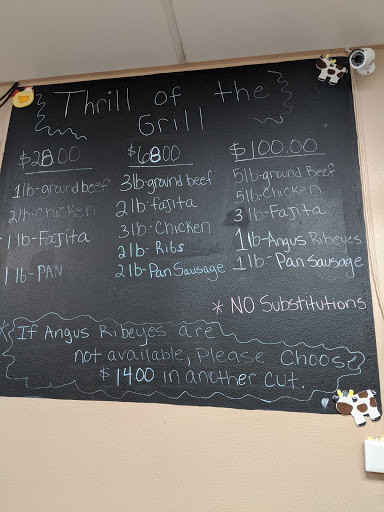 Thrill of the
Grill
$28.00
1lb-ground beef
2lb-Chicken
1lb-Fajita
1lb-PAN
$68.00
3lb-ground beef
2lb-fajita
3lb-Chicken
2lb-Ribs
2lb-Pan Sausage
$100.00
5lb-ground Beef
5lb-Chicken
3lb-Fajita
1lb-Angus Ribeyes
1lb-Pan Sausage
* NO Substitutions
* If Angus Ribeyes are
not available, Please Choose
$14.00 in another cut.